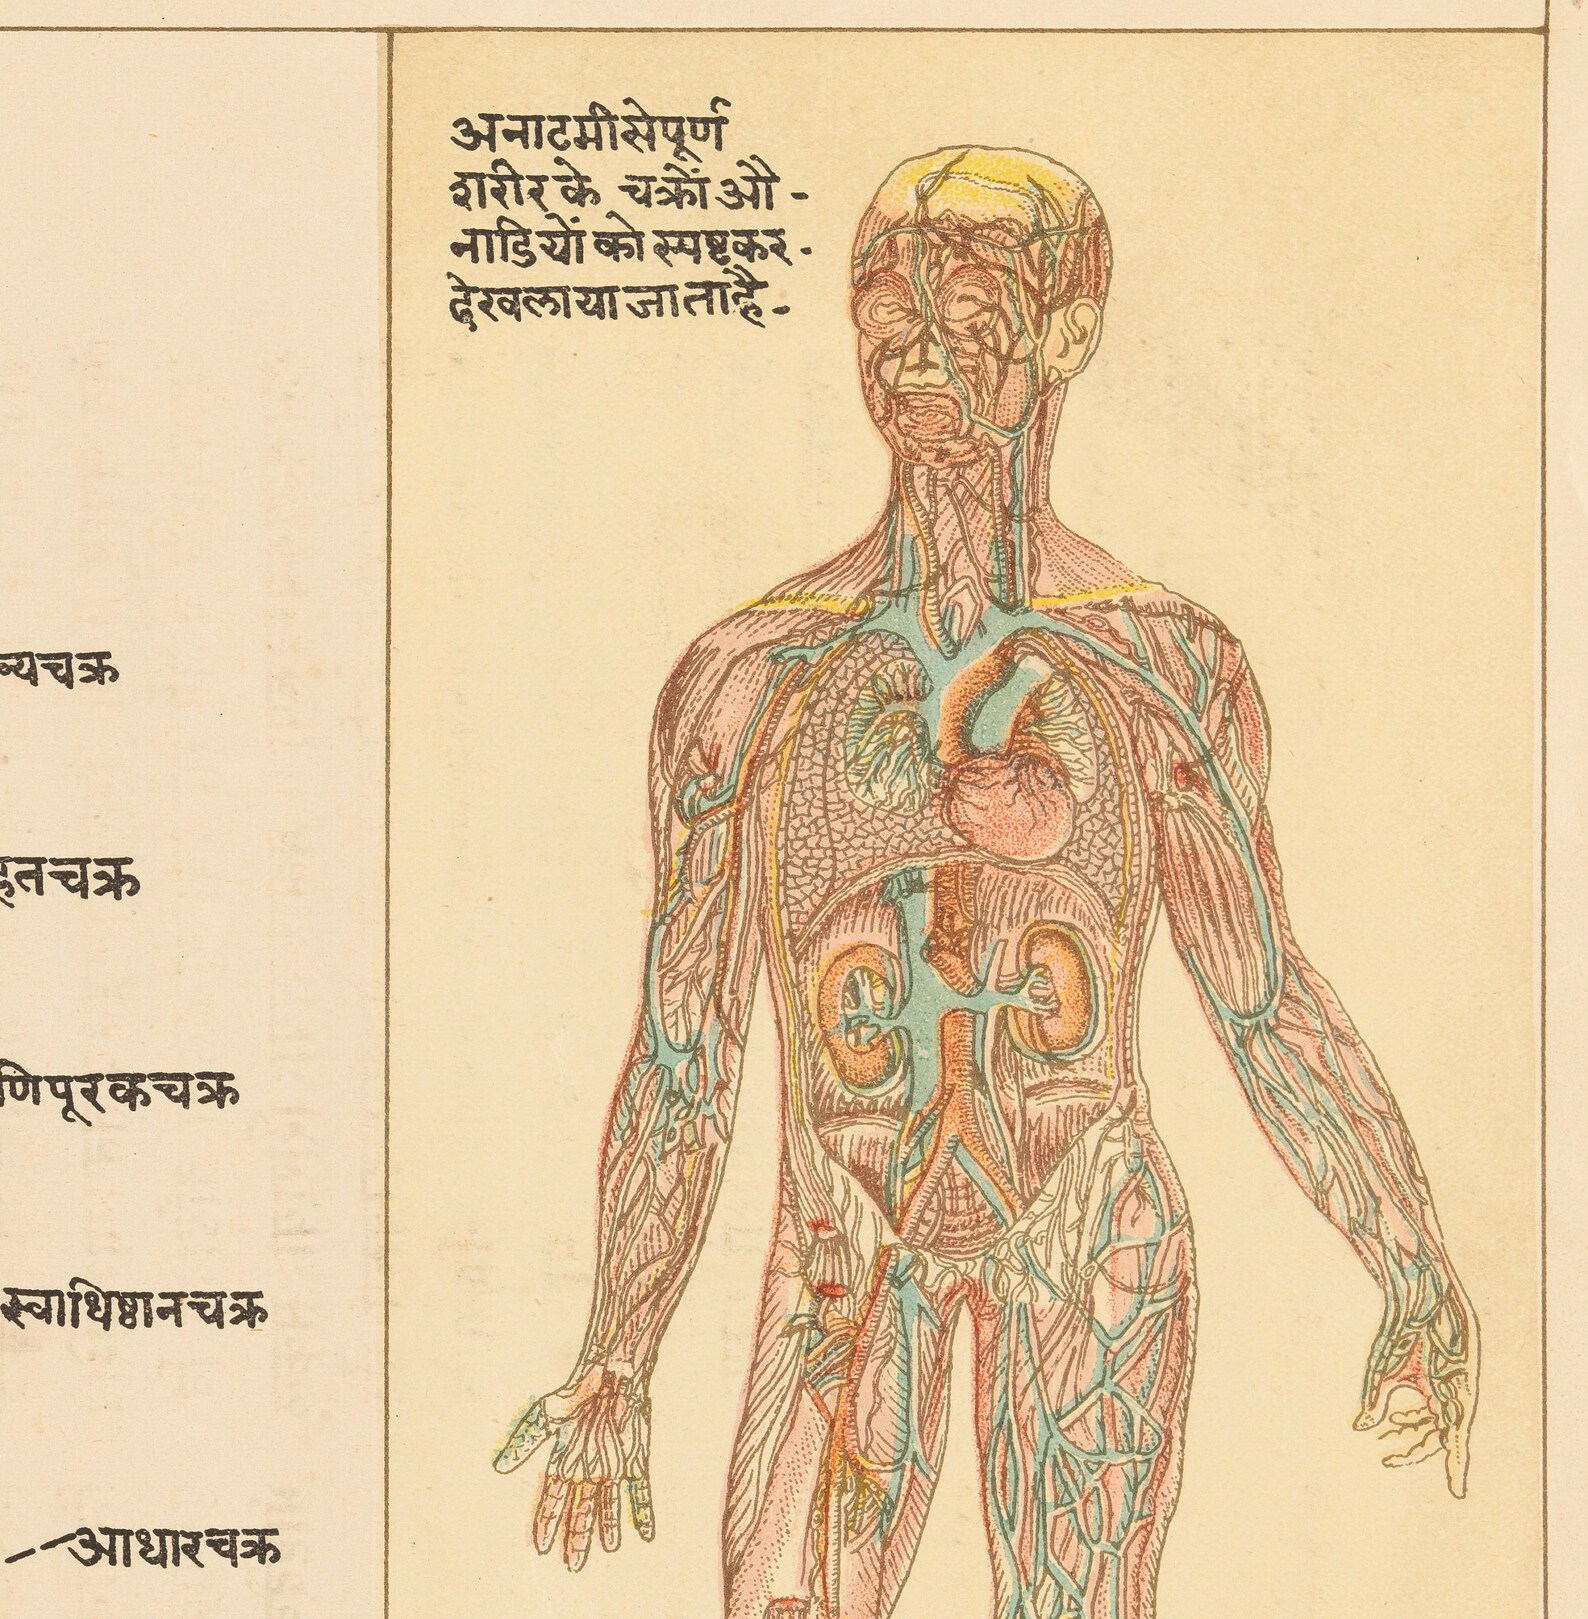 अनाटमीसेपूर्ण
शरीरके चक्रों औ -
नाडियों को स्पष्टकर -
देखलायाजाताहै -
चक्र
चक्र
णिपूरकचक्र
स्वाधिष्ठानचक्र
आधारचक्र